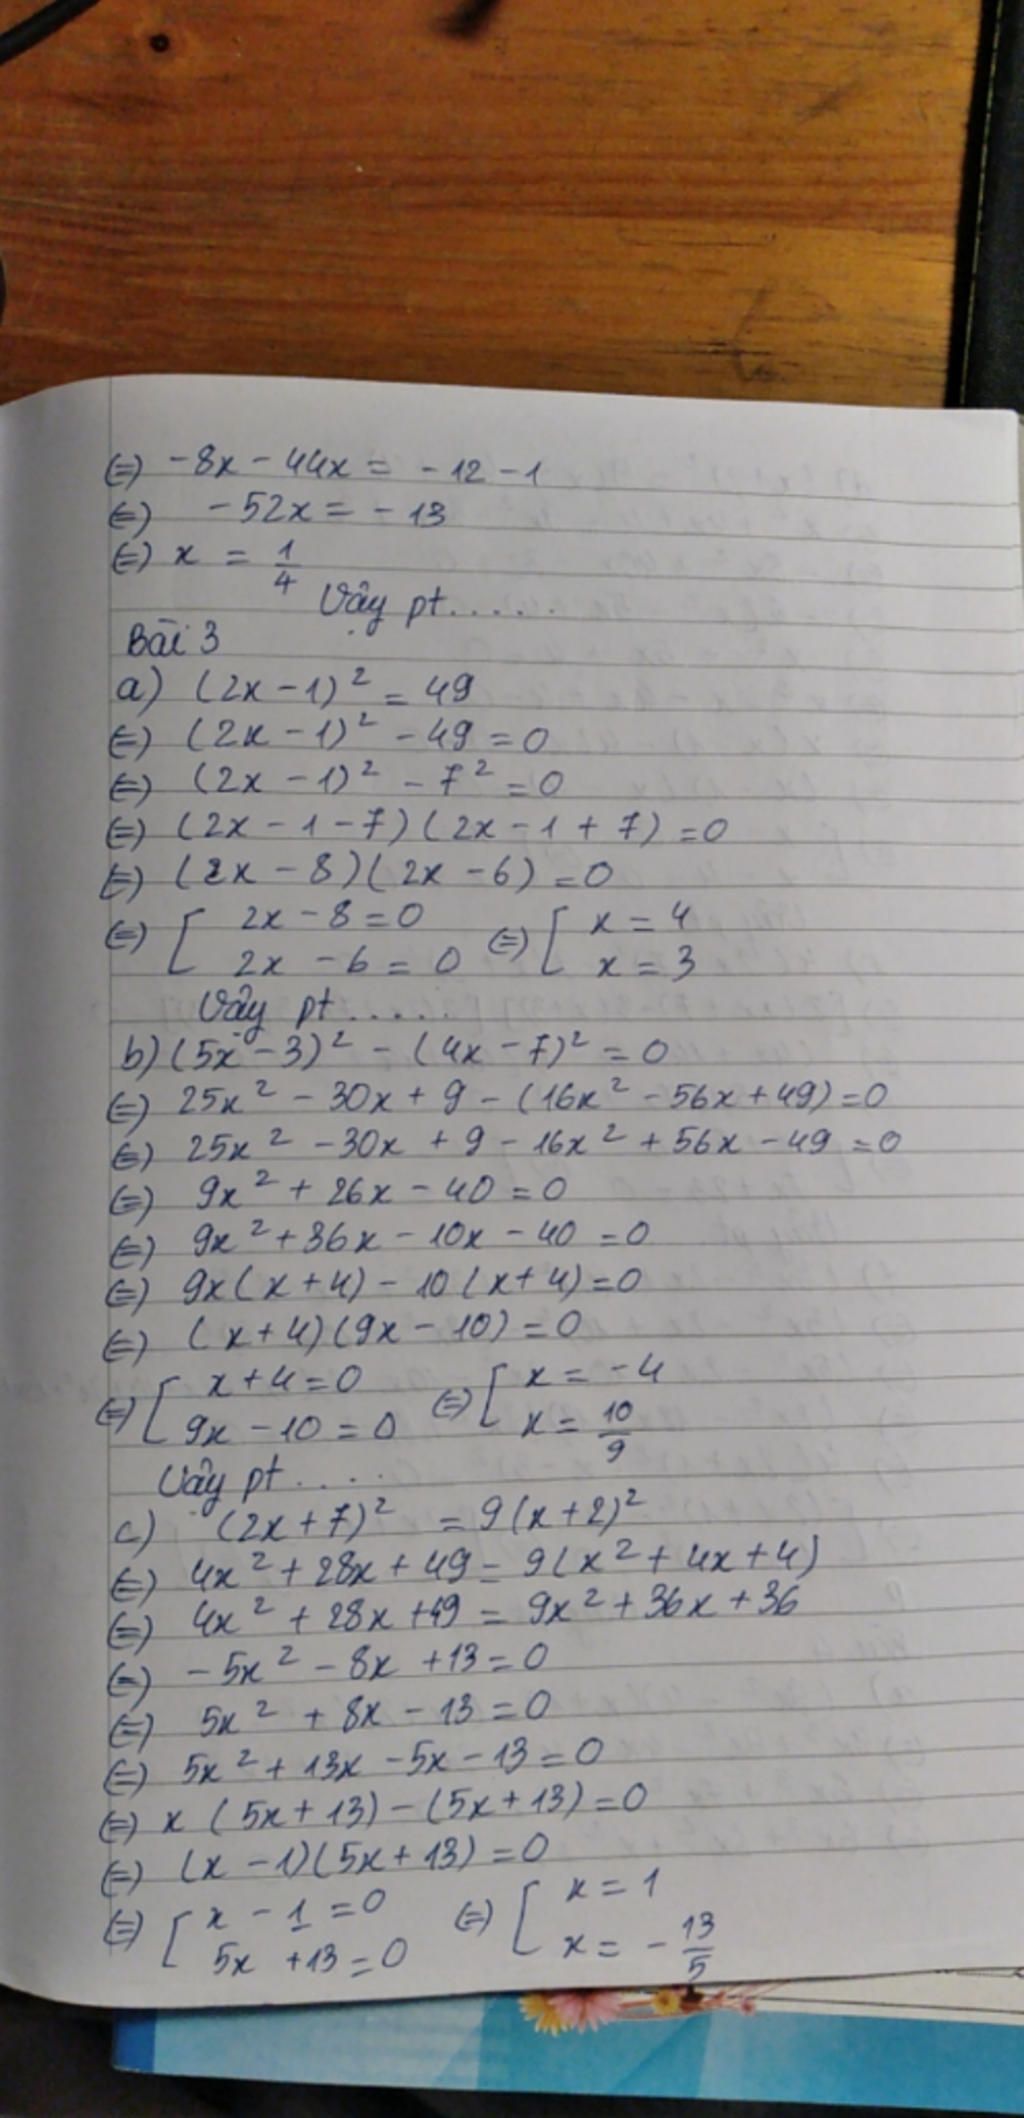 (=) -8x - 44x = -12 - 1
(=) -52x = -13
(=) x = 1/4
Vậy pt.....
Bài 3
a) (2x - 1)² = 49
(=) (2x - 1)² - 49 = 0
(=) (2x - 1)² - 7² = 0
(=) (2x - 1 - 7)(2x - 1 + 7) = 0
(=) (2x - 8)(2x - 6) = 0
(=) [ 2x - 8 = 0 (=) [ x = 4
2x - 6 = 0 x = 3
Vậy pt.....
b) (5x - 3)² - (4x - 7)² = 0
(=) 25x² - 30x + 9 - (16x² - 56x + 49) = 0
(=) 25x² - 30x + 9 - 16x² + 56x - 49 = 0
(=) 9x² + 26x - 40 = 0
(=) 9x² + 36x - 10x - 40 = 0
(=) 9x(x + 4) - 10(x + 4) = 0
(=) (x + 4)(9x - 10) = 0
(=) [ x + 4 = 0 (=) [ x = -4
9x - 10 = 0 x = 10/9
Vậy pt....
c) (2x + 7)² = 9(x + 2)²
(=) 4x² + 28x + 49 = 9(x² + 4x + 4)
(=) 4x² + 28x + 49 = 9x² + 36x + 36
(=) -5x² - 8x + 13 = 0
(=) 5x² + 8x - 13 = 0
(=) 5x² + 13x - 5x - 13 = 0
(=) x(5x + 13) - (5x + 13) = 0
(=) (x - 1)(5x + 13) = 0
(=) [ x - 1 = 0 (=) [ x = 1
5x + 13 = 0 x = -13/5